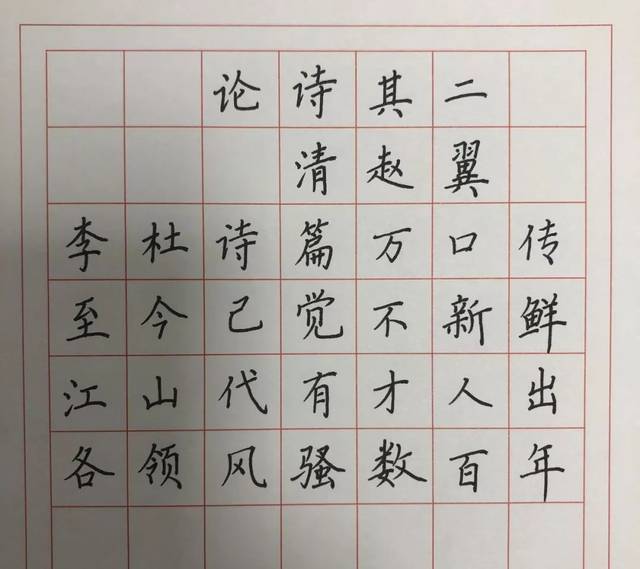 论诗其二
清赵翼
李杜诗篇万口传
至今己觉不新鲜
江山代有才人出
各领风骚数百年